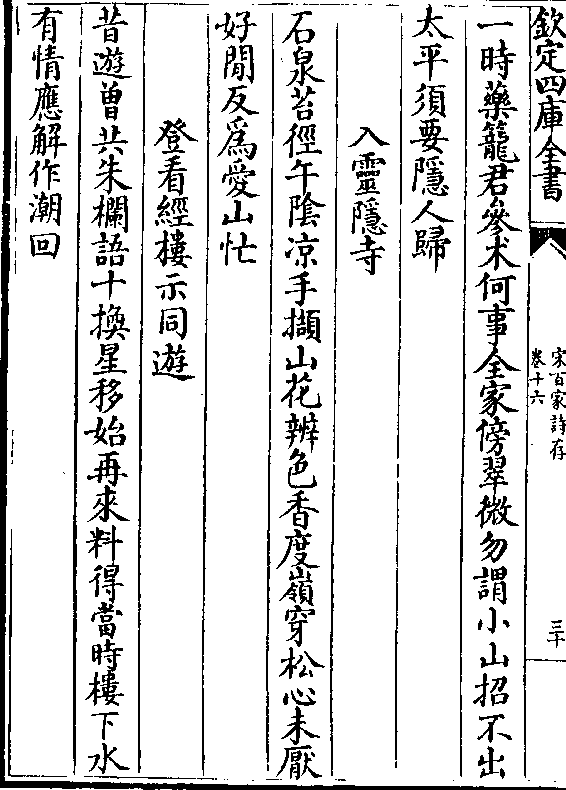 欽定四庫全書
宋百家詩存
卷十六
三十
一時藥籠君參术何事全家傍翠微勿謂小山招不出
太平須要隱人歸
入靈隱寺
石泉苔徑午陰凉手擷山花辨色香度嶺穿松心未厭
好閒反為愛山忙
登看經樓示同遊
昔遊曾共朱欄語十換星移始再來料得當時樓下水
有情應解作潮回